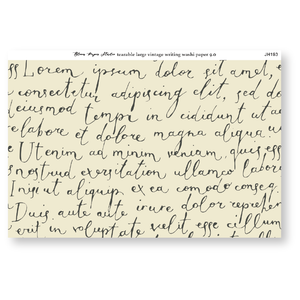 tearable large vintage writing washi paper 9.0 JH183
Lorem ipsum dolor sit amet,
consectetur adipiscing elit, sed do
eiusmod tempr in cididunt ut
labore et dolore magna aliqua
Ut enim ad minim veniam, quis
nostrud exercitation ullamco
nisi ut aliquip ex ea comodo conseq
Duis aute aute irure dolor reprehen
erit in voluptate velit esse cillum